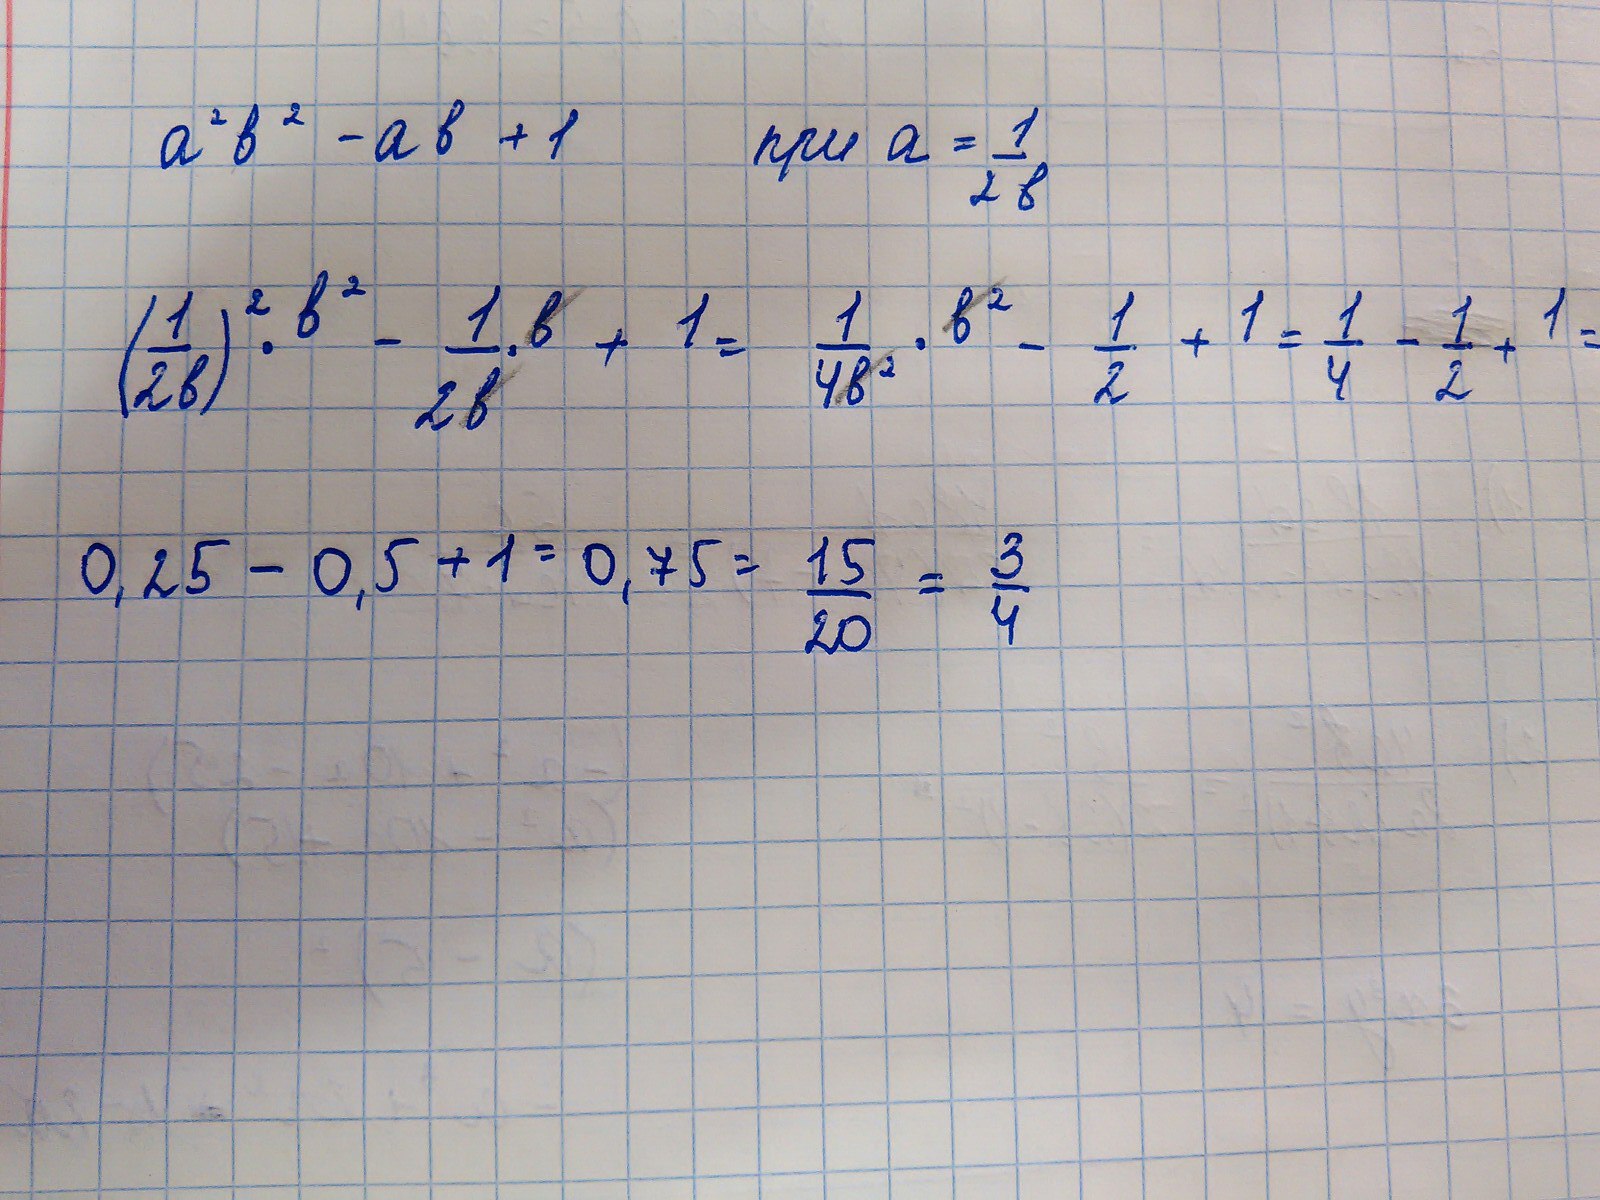 a²b² - ab + 1 при a = 1/2b
(1/2b)² · b² - 1/2b · b + 1 = 1/4b² · b² - 1/2 + 1 = 1/4 - 1/2 + 1 =
0,25 - 0,5 + 1 = 0,75 = 15/20 = 3/4